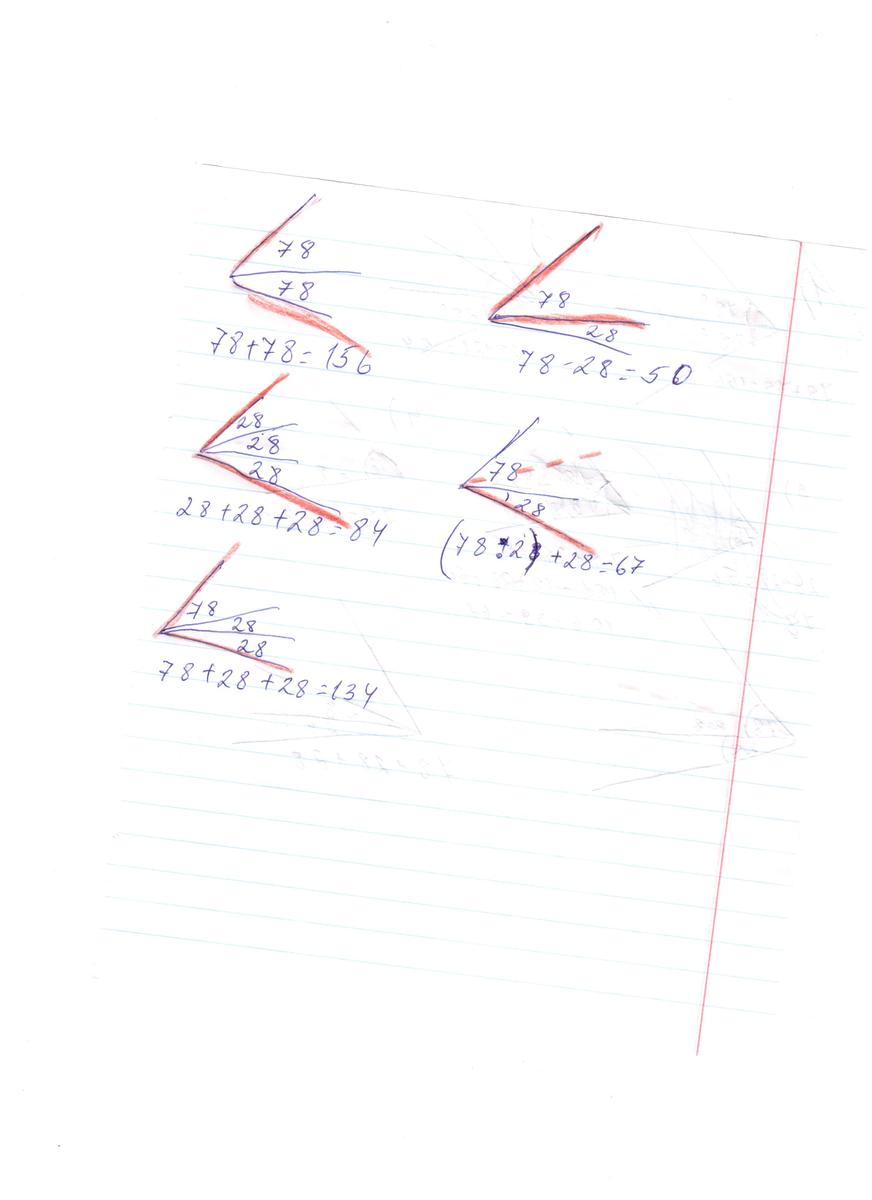 78
78
78+78=156
78
28
78-28=50
28
28
28
28+28+28=84
78
28
(78:2)+28=67
78
28
28
78+28+28=134